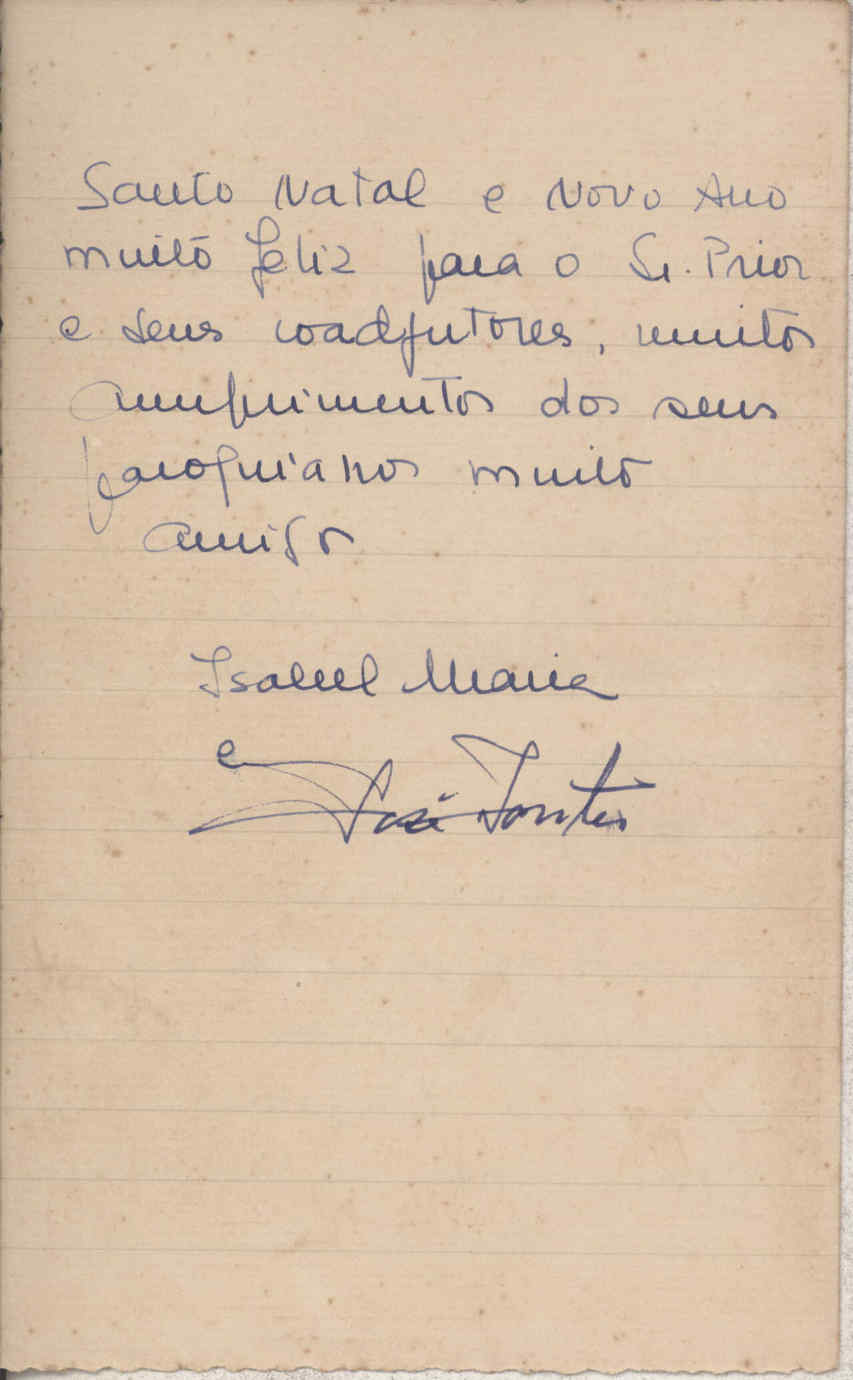 Santo Natal e Novo Ano
muito feliz para o Sr. Prior
e seus coadjutores, muitos
cumprimentos dos seus
paroquianos muito
amigos
Isabel Maria
e José Fontes